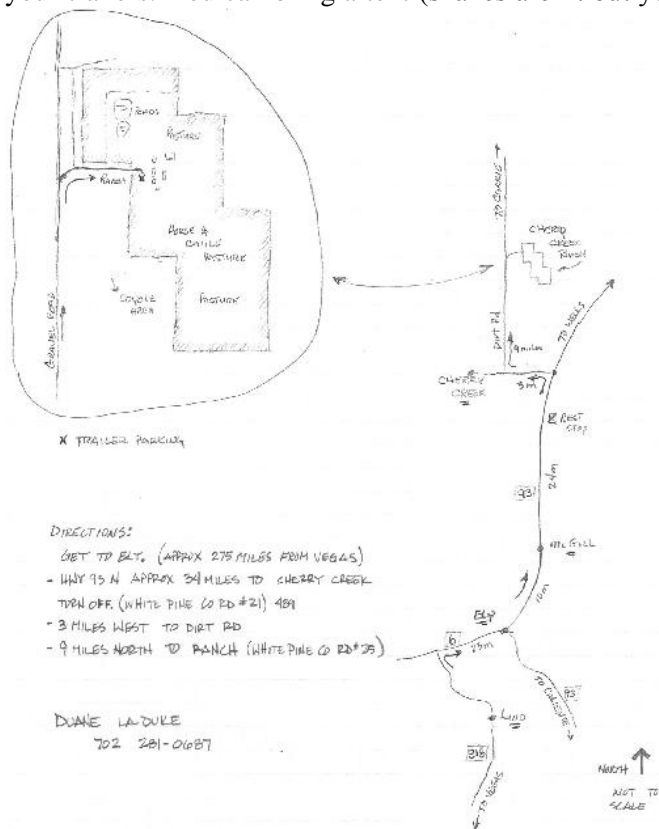 PONDS
PASTURE
RANCH
HORSE &
CATTLE
PASTURE
PASTURE
COYOTE
AREA
GRAVEL ROAD
X TRAILER PARKING
CHERRY
CREEK
RANCH
DIRT RD
9 MILES
TO WELLS
CHERRY
CREEK
3M
REST
STOP
24M
93
McGILL
10M
ELY
6
23M
93
LUND
318
TO VEGAS
NORTH
NOT TO
SCALE
DIRECTIONS:
GET TO ELY. (APPROX 275 MILES FROM VEGAS)
- HWY 93 N APPROX 34 MILES TO CHERRY CREEK
TURN OFF. (WHITE PINE CO RD #21) 489
- 3 MILES WEST TO DIRT RD
- 9 MILES NORTH TO RANCH (WHITE PINE CO RD #25)
DUANE LADUKE
702 281-0687